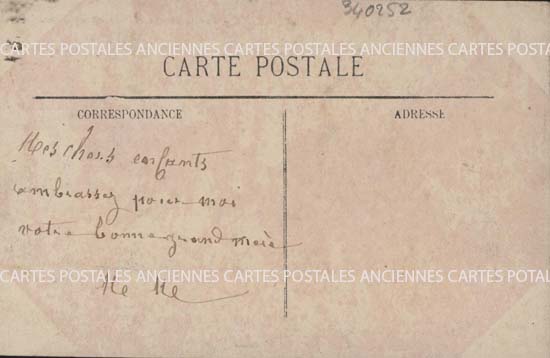 340252
CARTES POSTALES ANCIENNES CARTES POSTALES ANCIENNES CARTES POSTALES
CARTE POSTALE
CORRESPONDANCE
ADRESSE
Mes chers enfants
ambrassez pour moi
votre bonne grand mère
CARTES POSTALES ANCIENNES CARTES POSTALES ANCIENNES CARTES POTALES